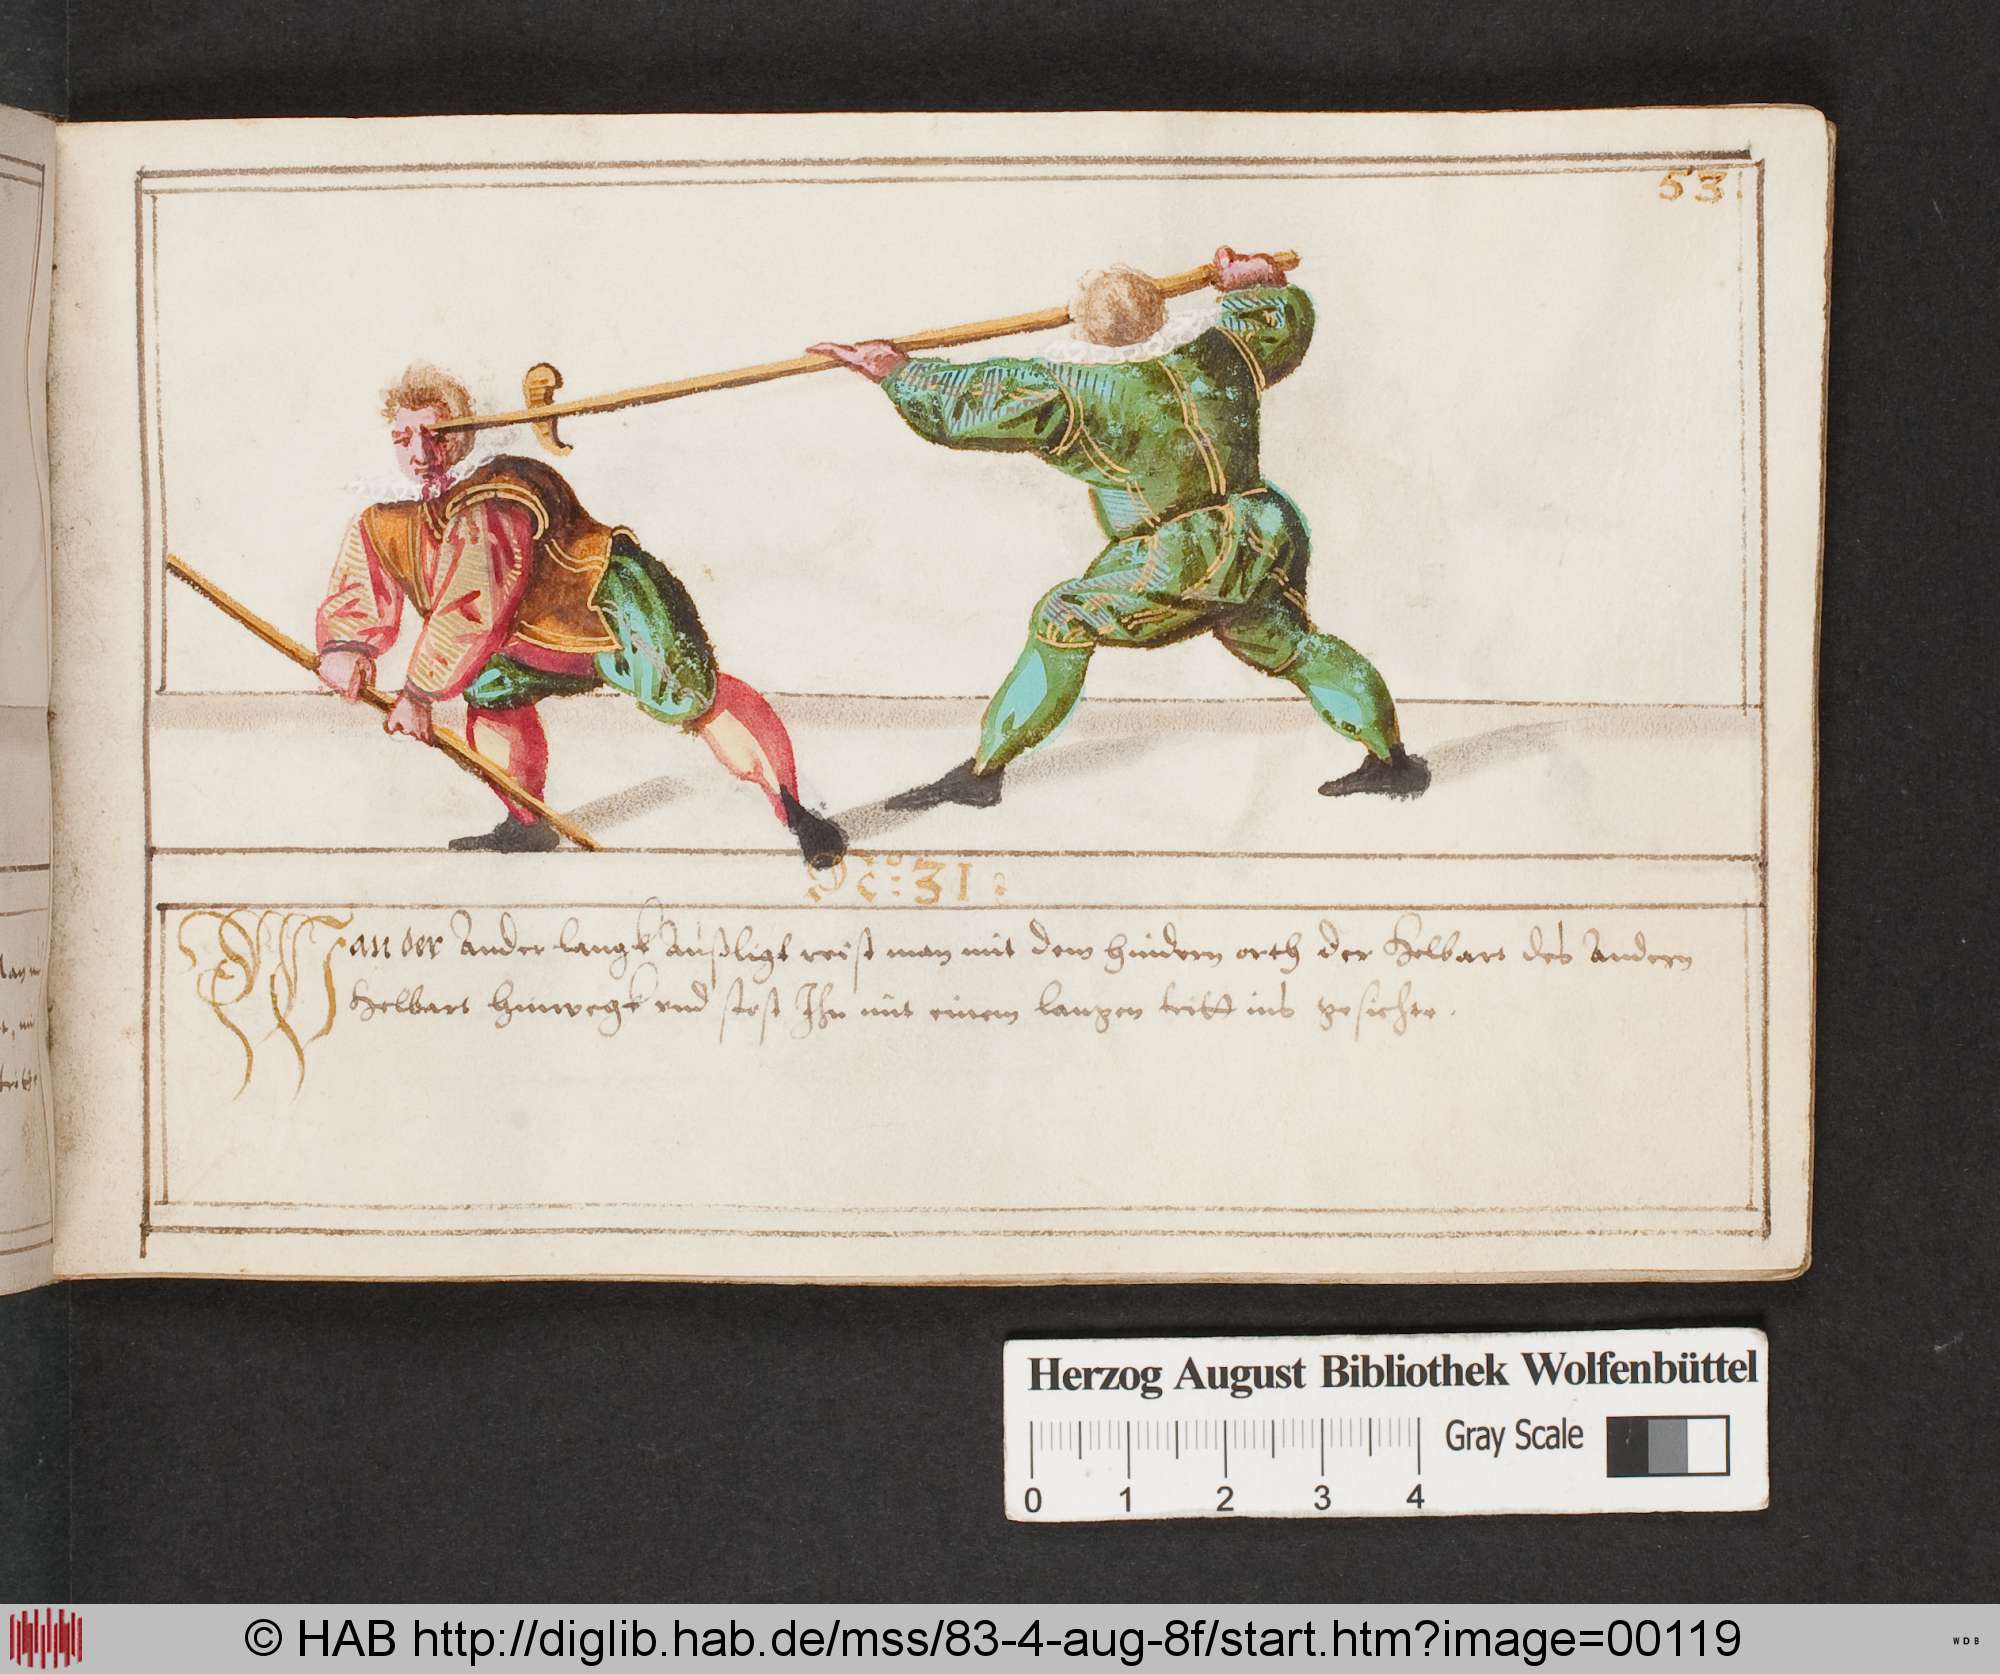 53.
No: 31:
Wan der Ander langk Außligt reist man mit dem hindern orth der Helbart des Andern
Helbart hinwegk vnd stost Ihn mit einem langen tritt ins gesichte.
Herzog August Bibliothek Wolfenbüttel
Gray Scale
0 1 2 3 4
© HAB http://diglib.hab.de/mss/83-4-aug-8f/start.htm?image=00119
WDB